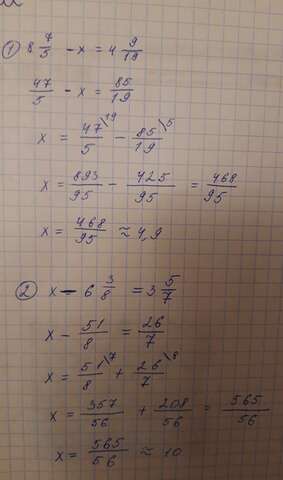 ① 8 7/5 - x = 4 9/19
47/5 - x = 85/19
x = 47\19/5 - 85\5/19
x = 893/95 - 425/95 = 468/95
x = 468/95 ≈ 4,9
② x - 6 3/8 = 3 5/7
x - 51/8 = 26/7
x = 51\7/8 + 26\8/7
x = 357/56 + 208/56 = 565/56
x = 565/56 ≈ 10